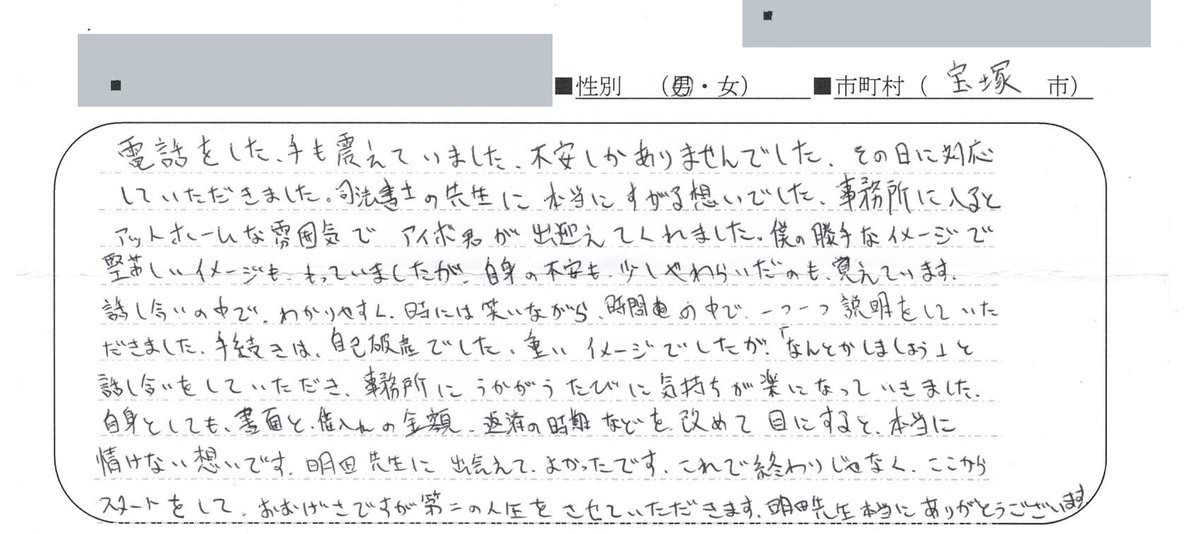 ■性別 （男・女） ■市町村（ 宝塚 市）
電話をした、手も震えていました、不安しかありませんでした、その日に対応
していただきました。司法書士の先生に 本当にすがる想いでした、事務所に入ると
アットホームな雰囲気で アイボ君が 出迎えてくれました。僕の勝手なイメージで
堅苦しいイメージも、もっていましたが、自身の不安も、少しやわらいだのも、覚えています。
話し合いの中で、わかりやすく、時には笑いながら、時間の中で、一つ一つ説明をしていた
だきました、手続きは、自己破産でした、重い イメージでしたが、「なんとかしましょう」と
話し合いをしていただき、事務所に うかがうたびに気持ちが楽になっていきました。
自身としても、書面と、借入れの金額、返済の時期 などを 改めて 目にすると、本当に
情けない想いです、明田先生に 出会えて、よかったです、これで終わりじゃなく、ここから
スタートをして、おおげさですが第二の人生を させていただきます、明田先生本当にありがとうございます